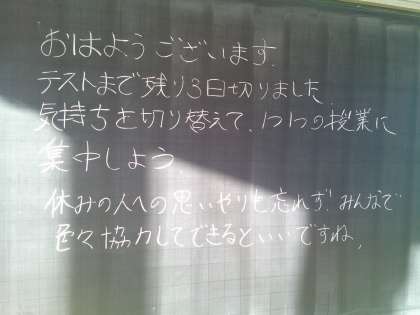 おはようございます.
テストまで残り3日切りました.
気持ちを切り替えて、1つ1つの授業に
集中しよう.
休みの人への思いやりも忘れず.みんなで
色々協力してできるといいですね.